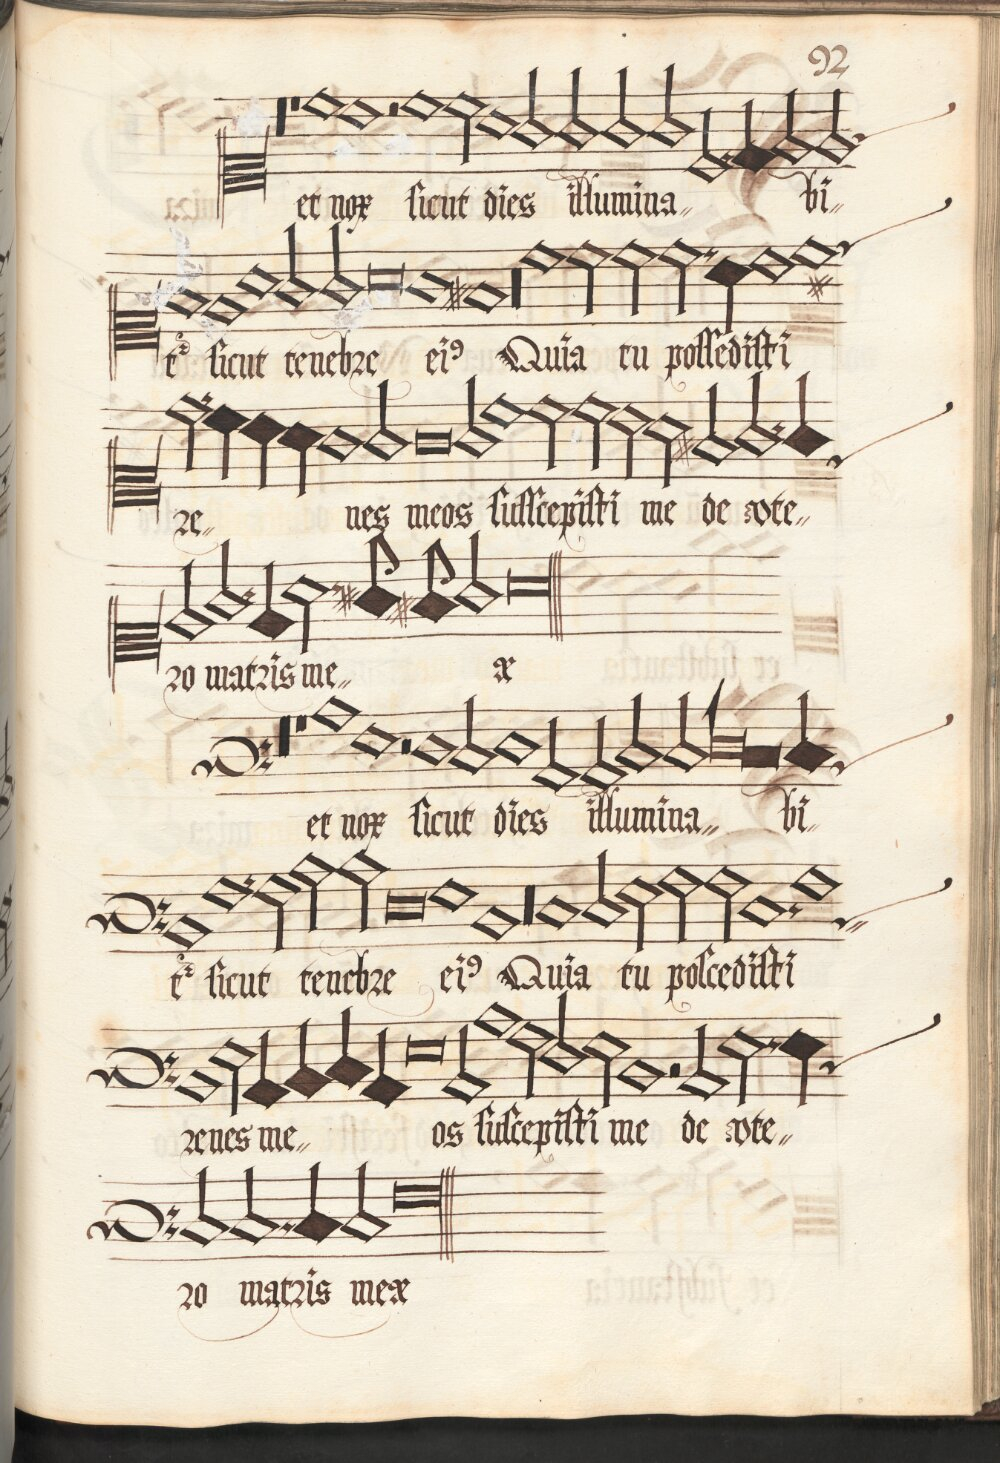 92
et nox sicut dies illumina„ bi„
tr sicut tenebre ei9 Quia tu possedisti
re„ nes meos suscepisti me de vte„
ro matris me„ æ
et nox sicut dies illumina„ bi„
tr sicut tenebre ei9 Quia tu poscedisti
renes me„ os suscepisti me de vte„
ro matris meæ